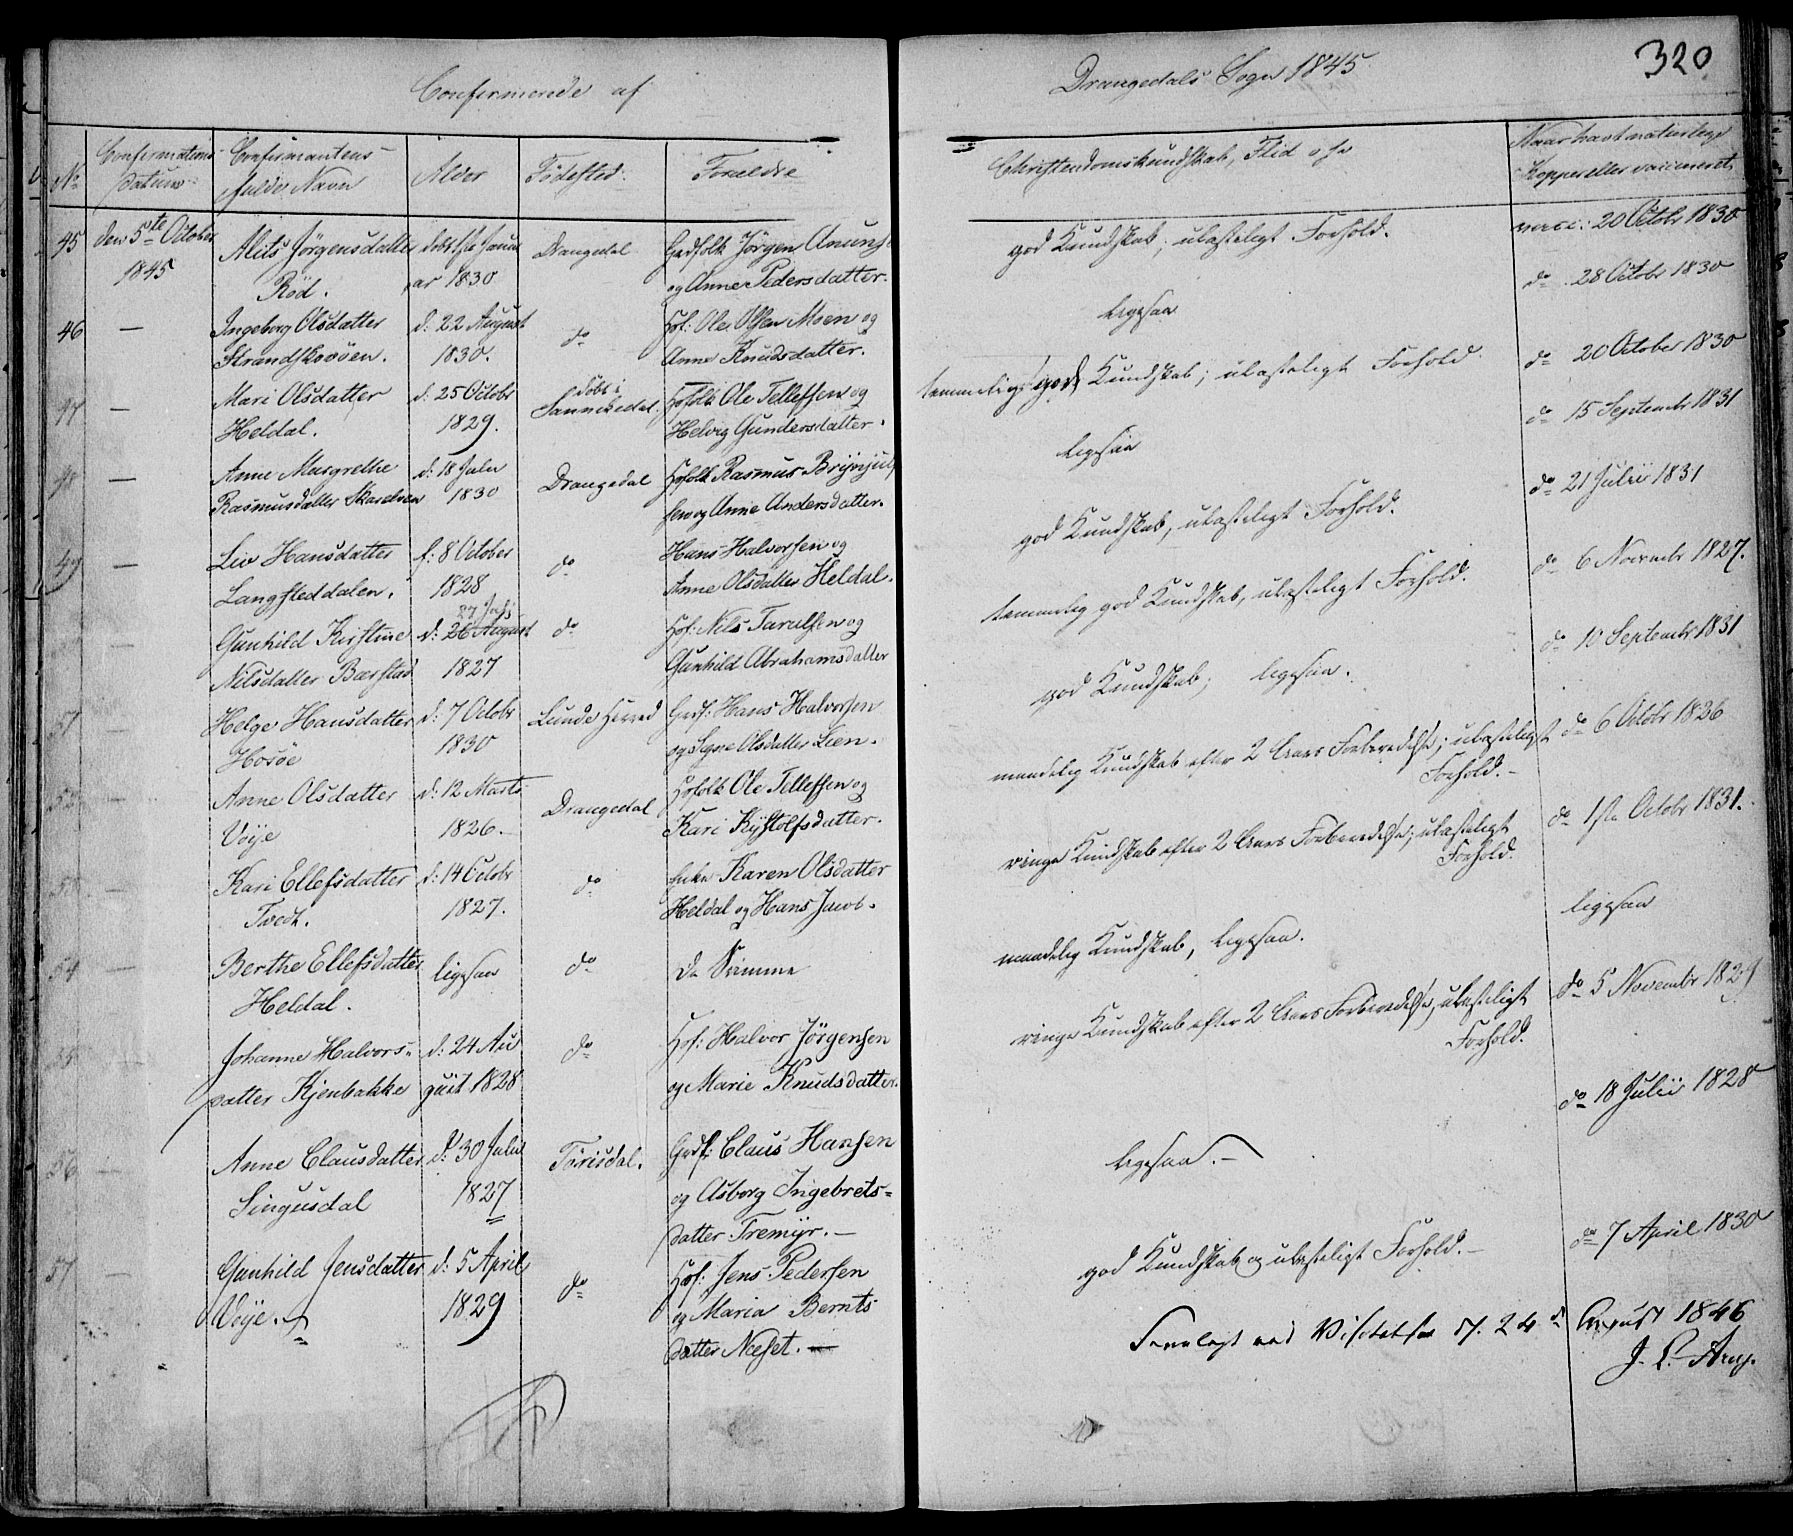 320
Confirmerede af Drangedals Sogn 1845
No
Confirmations Datum
Confirmantens fulde Navn
Alder
Fødested
Forældre
Christendomskundskab, Flid osv
Naar havt naturlige Kopper eller vaccineret
45 den 5te October Alits Jörgensdatter Drangedal Grdfolk Jörgen Anuns god Kundskab; ulasteligt Forhold. vacc: 20 Octobr 1830
1845 Röd. ar 1830 og Anne Pedersdatter.
46 — Ingeborg Olsdatter d: 22 August do Hof: Ole Olsen Moen og ligesaa do 28 Octobr 1830
1830. Anne Knudsdatter.
47 — Mari Olsdatter d: 25 Octobr döbt i Sannikedal. Hosfolk Ole Tellefsen og temmelig god Kundskab; ulasteligt Forhold do 20 October 1830
Heldal. 1829. Helvig Gundersdatter.
48 — Anne Margrethe d: 18 Drangedal Hosfolk Rasmus Brynjulf ligesaa do 15 Septembr 1831
Rasmusdatter 1830 sen og Anne Andersdatter.
49 — Liv Hansdatter f: 8 October do Hans Halvorsen og god Kundskab, ulasteligt Forhold. do 21 Julii 1831
Langsteddalen. 1828 Anne Olsdatter Heldal.
— Gunhild Kirstine d: 26 August do Hof: Nils Taralsen og temmelig god Kundskab, ulasteligt Forhold. do 6 Novembr 1827.
Nilsdatter Barstad 1827 Gunhild Abrahamsdatter
51 — Helge Hansdatter d: 7 Octobr Lunde Herred Grdf: Hans Halvorsen god Kundskab; ligesaa. do 10 Septembr 1831
Hosöe 1830 og Signe Olsdatter Lien.
52 — Anne Olsdatter d: 12 Marts Drangedal Hosfolk Ole Tellefsen og maadelig Kundskab efter 2 Aars Forberedelse; ulasteligt Forhold. — do 6 Octobr 1826
Vöje 1826. — Kari Kystolfsdatter.
53 — Kari Ellefsdatter d: 14 Octobr do Enke Karen Olsdatter ringe Kundskab efter 2 Aars Forberedelse; ulasteligt Forhold. do 1ste Octobr 1831.
Tvedt. 1827. Heldal og Hans Jacob.
54 — Berthe Ellefsdatter ligesaa do De Samme maadelig Kundskab, ligesaa. ligesaa
Heldal.
55 — Johanne Halvors- d: 24 Au do Hof: Halvor Jörgensen ringe Kundskab efter 2 Aars Forberedelse, ulasteligt Forhold. do 5 Novembr 1829
datter Kjenbakke gust 1828 og Marie Knudsdatter.
56 — Anne Clausdatter d: 30 Julii Törisdal. Grdf: Claus Hansen ligesaa. — do 18 Julii 1828
Singusdal 1827 og Asborg Ingebrets-
datter Tremyr. —
57 — Gunhild Jensdatter d: 5 April do Hof: Jens Pedersen god Kundskab og ulasteligt Forhold. — do 7 April 1830
Vöje. 1829 og Maria Bernts
datter Næset. —
Fremlagt ved Visitatsen d. 24d August 1846
J. L. Arup.